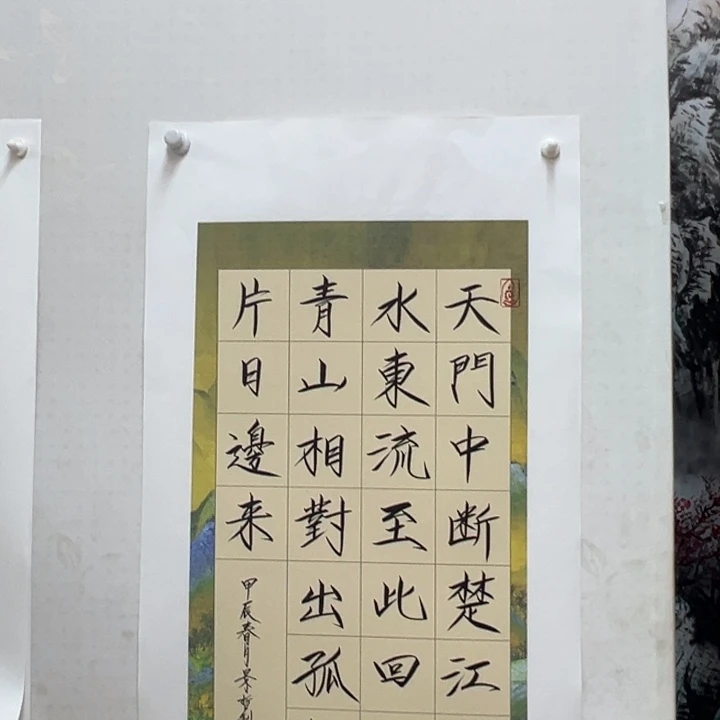 天門中断楚江
水東流至此回
青山相對出孤
片日邊来
甲辰春月景